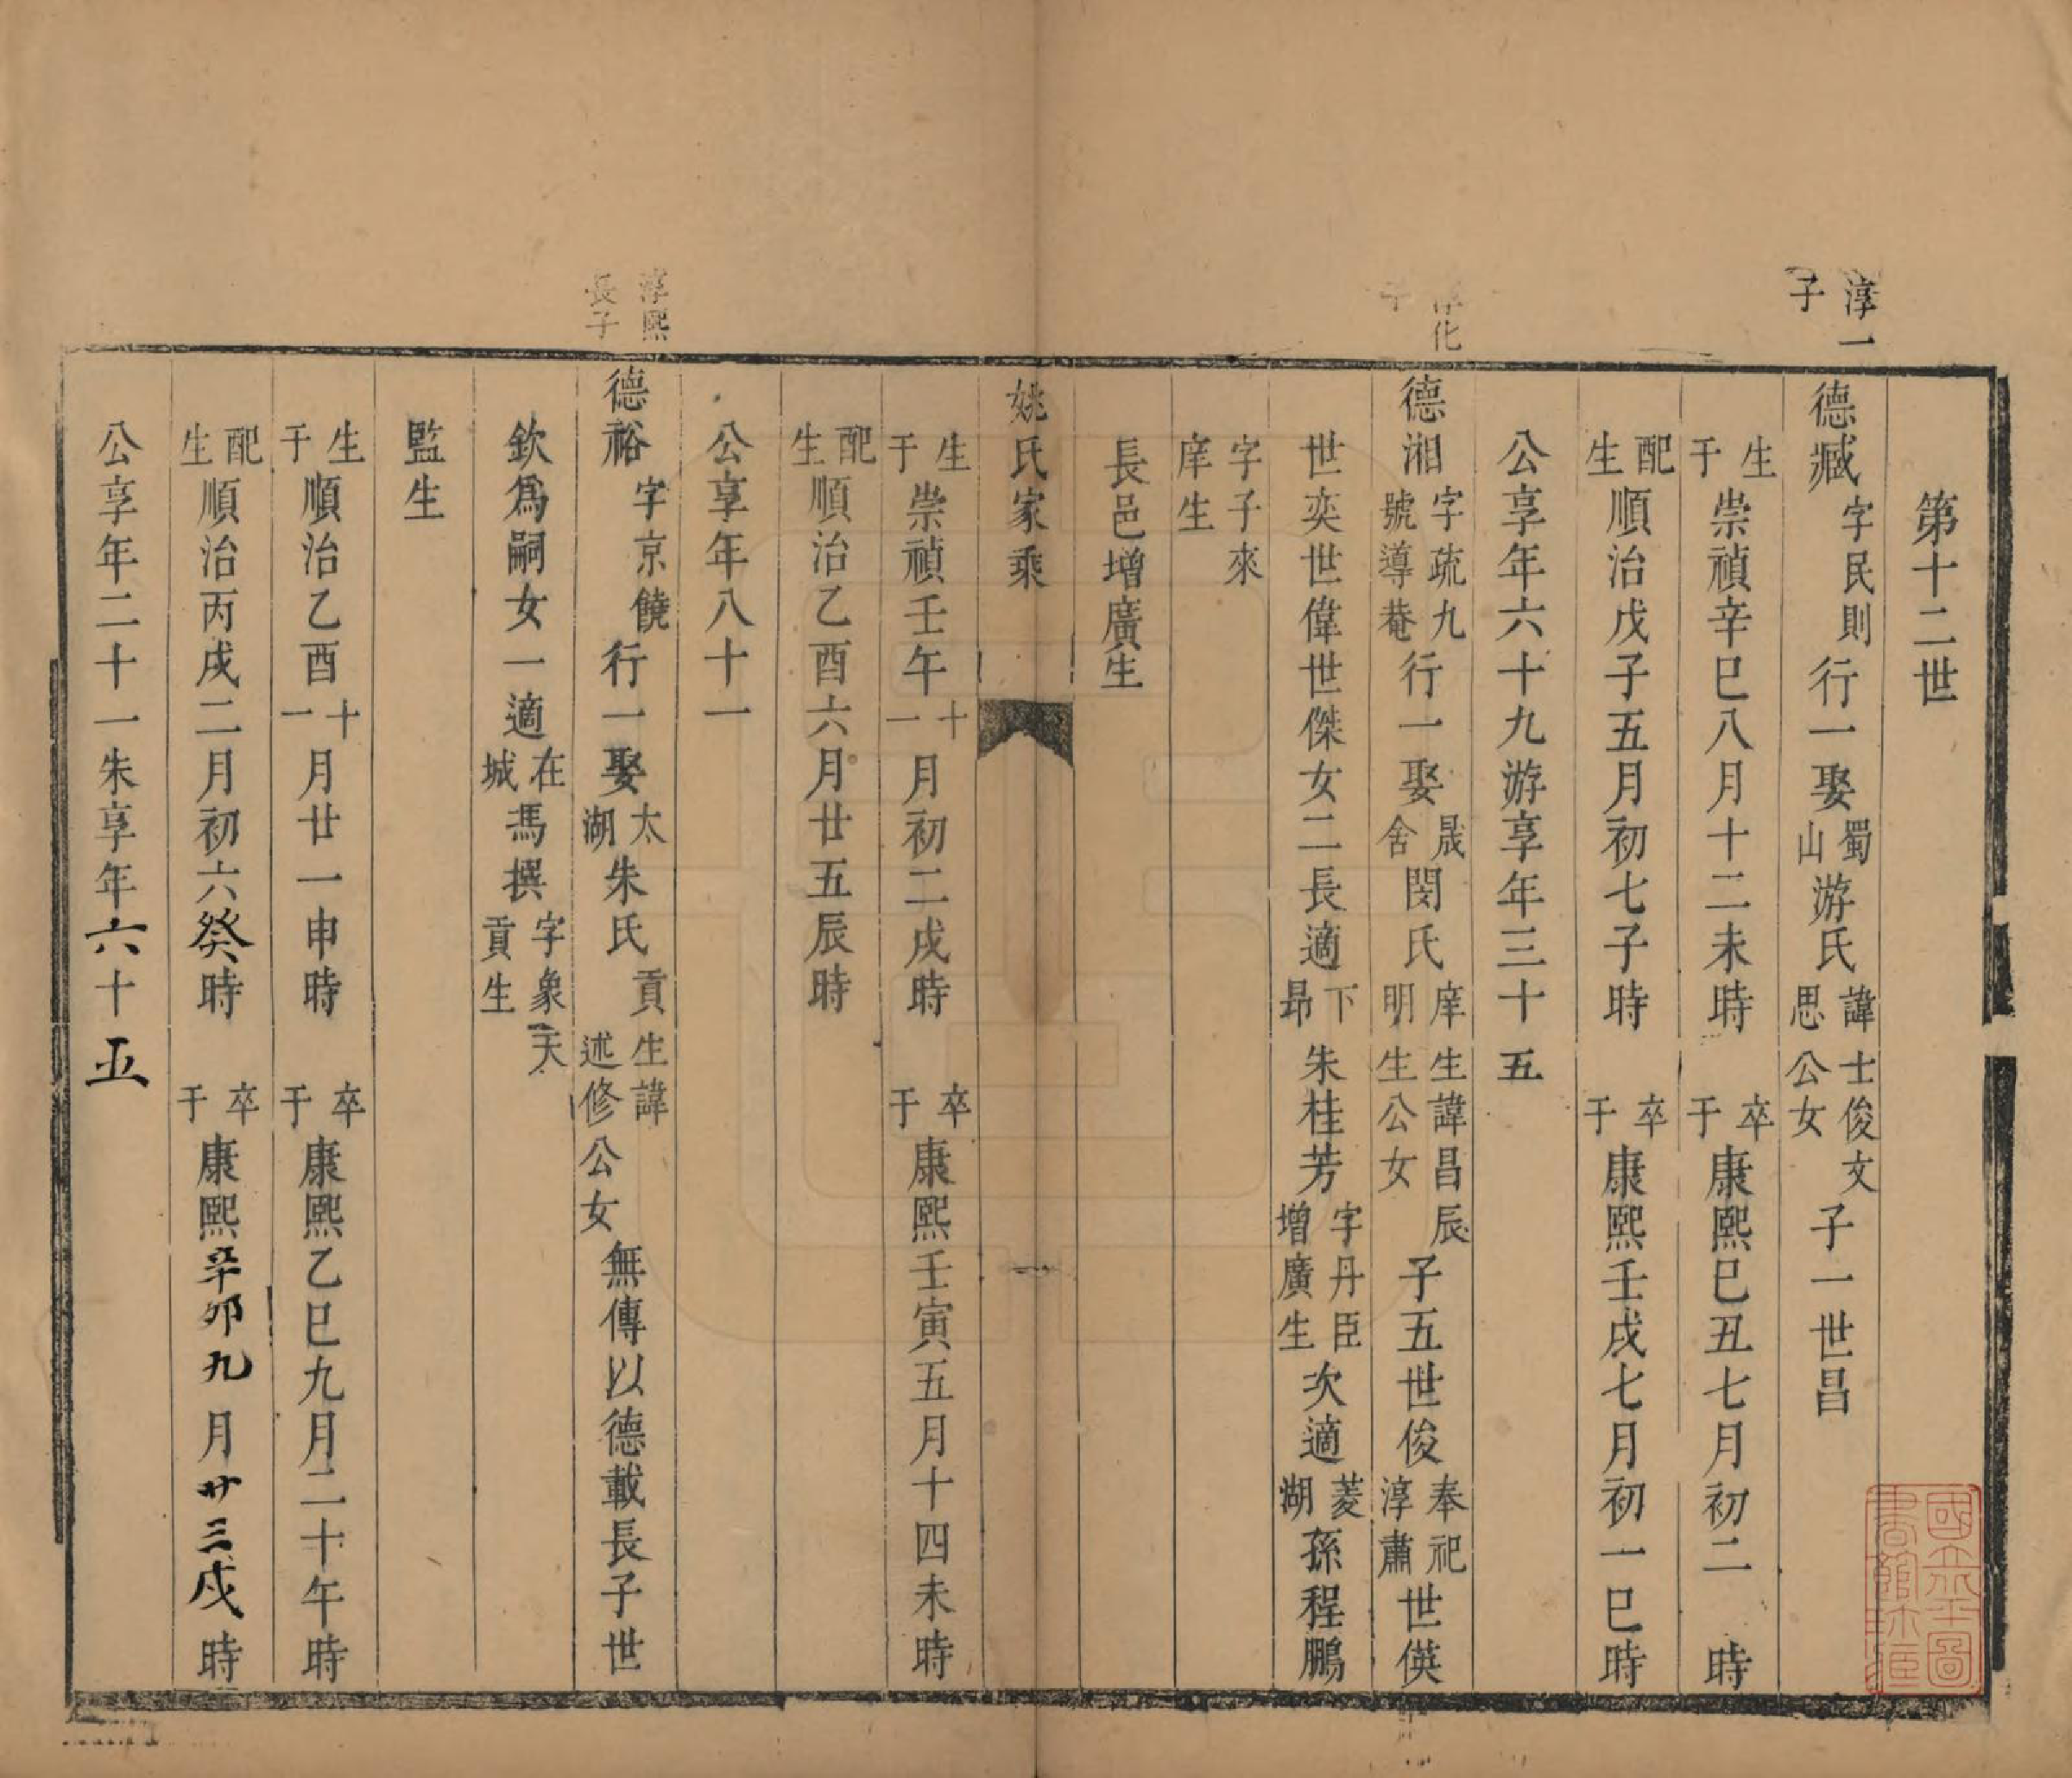 第十二世
淳一子
德臧字民則行一娶蜀山游氏諱士俊文思公女子一世昌
生于崇禎辛巳八月十二未時卒于康熙己丑七月初二時
配生順治戊子五月初七子時卒于康熙壬戌七月初一巳時
公享年六十九游享年三十五
淳化子
德湘字疏九號導菴行一娶晟舍閔氏庠生諱昌辰明生公女子五世俊奉祀淳肅世偀
世奕世偉世傑女二長適下昂朱桂芳字丹臣增廣生次適菱湖孫程鵬
字子來庠生
長邑增廣生
姚氏家乘
生于崇禎壬午十一月初二戌時卒于康熙壬寅五月十四未時
配生順治乙酉六月廿五辰時
公享年八十一
淳熙長子
德裕字京饒行一娶太湖朱氏貢生諱述修公女無傳以德載長子世
欽為嗣女一適在城馮撰字象天貢生
監生
生于順治乙酉十一月廿一申時卒于康熙乙巳九月二十午時
配生順治丙戌二月初六癸時卒于康熙辛卯九月廿三戌時
公享年二十一朱享年六十五